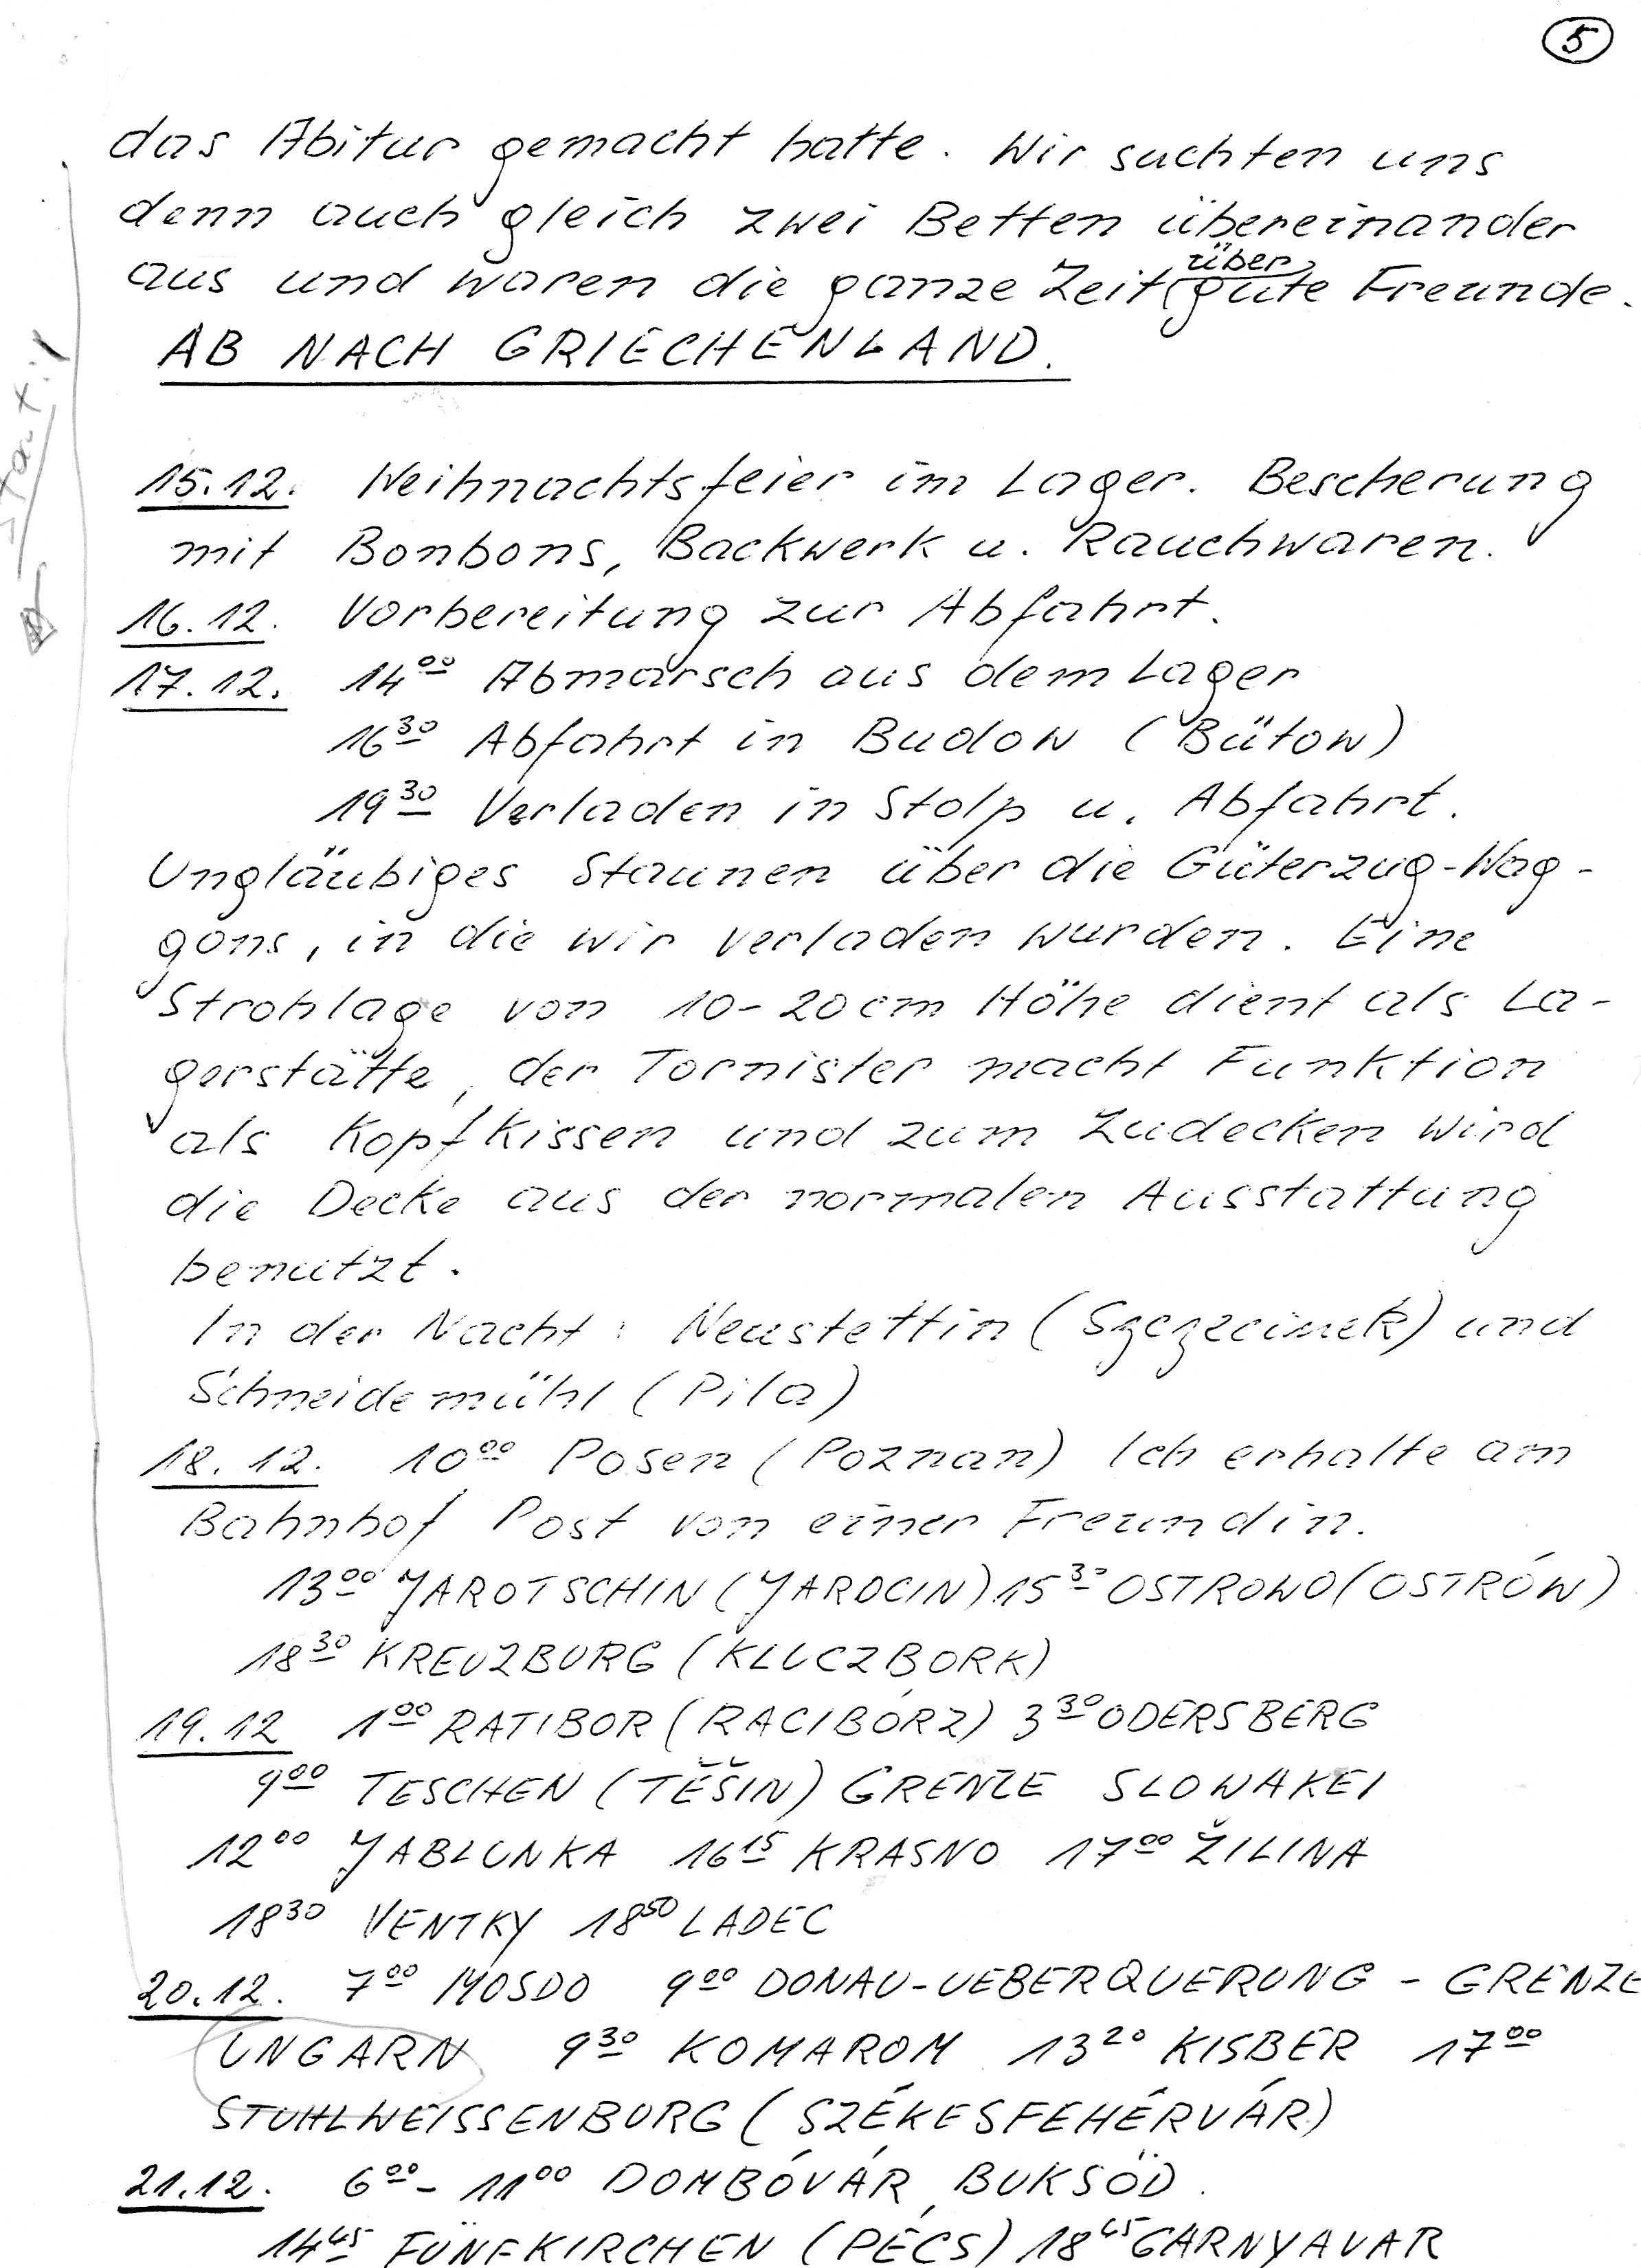 5
das Abitur gemacht hatte. Wir suchten uns
denn auch gleich zwei Betten übereinander
aus und waren die ganze Zeit über gute Freunde.
AB NACH GRIECHENLAND.
15.12. Weihnachtsfeier im Lager. Bescherung
mit Bonbons, Backwerk u. Rauchwaren.
16.12. Vorbereitung zur Abfahrt.
17.12. 14⁰⁰ Abmarsch aus dem Lager
16³⁰ Abfahrt in Budow (Bütow)
19³⁰ Verladen in Stolp u. Abfahrt.
Ungläubiges Staunen über die Güterzug-Wag-
gons, in die wir verladen wurden. Eine
Strohlage von 10-20cm Höhe dient als La-
gerstätte, der Tornister macht Funktion
als Kopfkissen und zum Zudecken wird
die Decke aus der normalen Ausstattung
benutzt.
In der Nacht: Neustettin (Szczecinek) und
Schneidemühl (Pila)
18.12. 10⁰⁰ Posen (Poznan) Ich erhalte am
Bahnhof Post von einer Freundin.
13⁰⁰ JAROTSCHIN (JAROCIN) 15³⁰ OSTROWO (OSTRÓW)
18³⁰ KREUZBURG (KLUCZBORK)
19.12 1⁰⁰ RATIBOR (RACIBÓRZ) 3³⁰ ODERSBERG
9⁰⁰ TESCHEN (TĚŠIN) GRENZE SLOWAKEI
12⁰⁰ JABLUNKA 16¹⁵ KRASNO 17⁰⁰ ŽILINA
18³⁰ VENTKY 18⁵⁰ LADEC
20.12. 7⁰⁰ MOSDO 9⁰⁰ DONAU-UEBERQUERUNG - GRENZE
UNGARN 9³⁰ KOMAROM 13²⁰ KISBER 17⁰⁰
STUHLWEISSENBURG (SZÉKESFEHÉRVÁR)
21.12. 6⁰⁰ - 11⁰⁰ DOMBÓVÁR, BUKSÖD.
14⁴⁵ FÜNFKIRCHEN (PÉCS) 18⁴⁵ GARNYAVAR